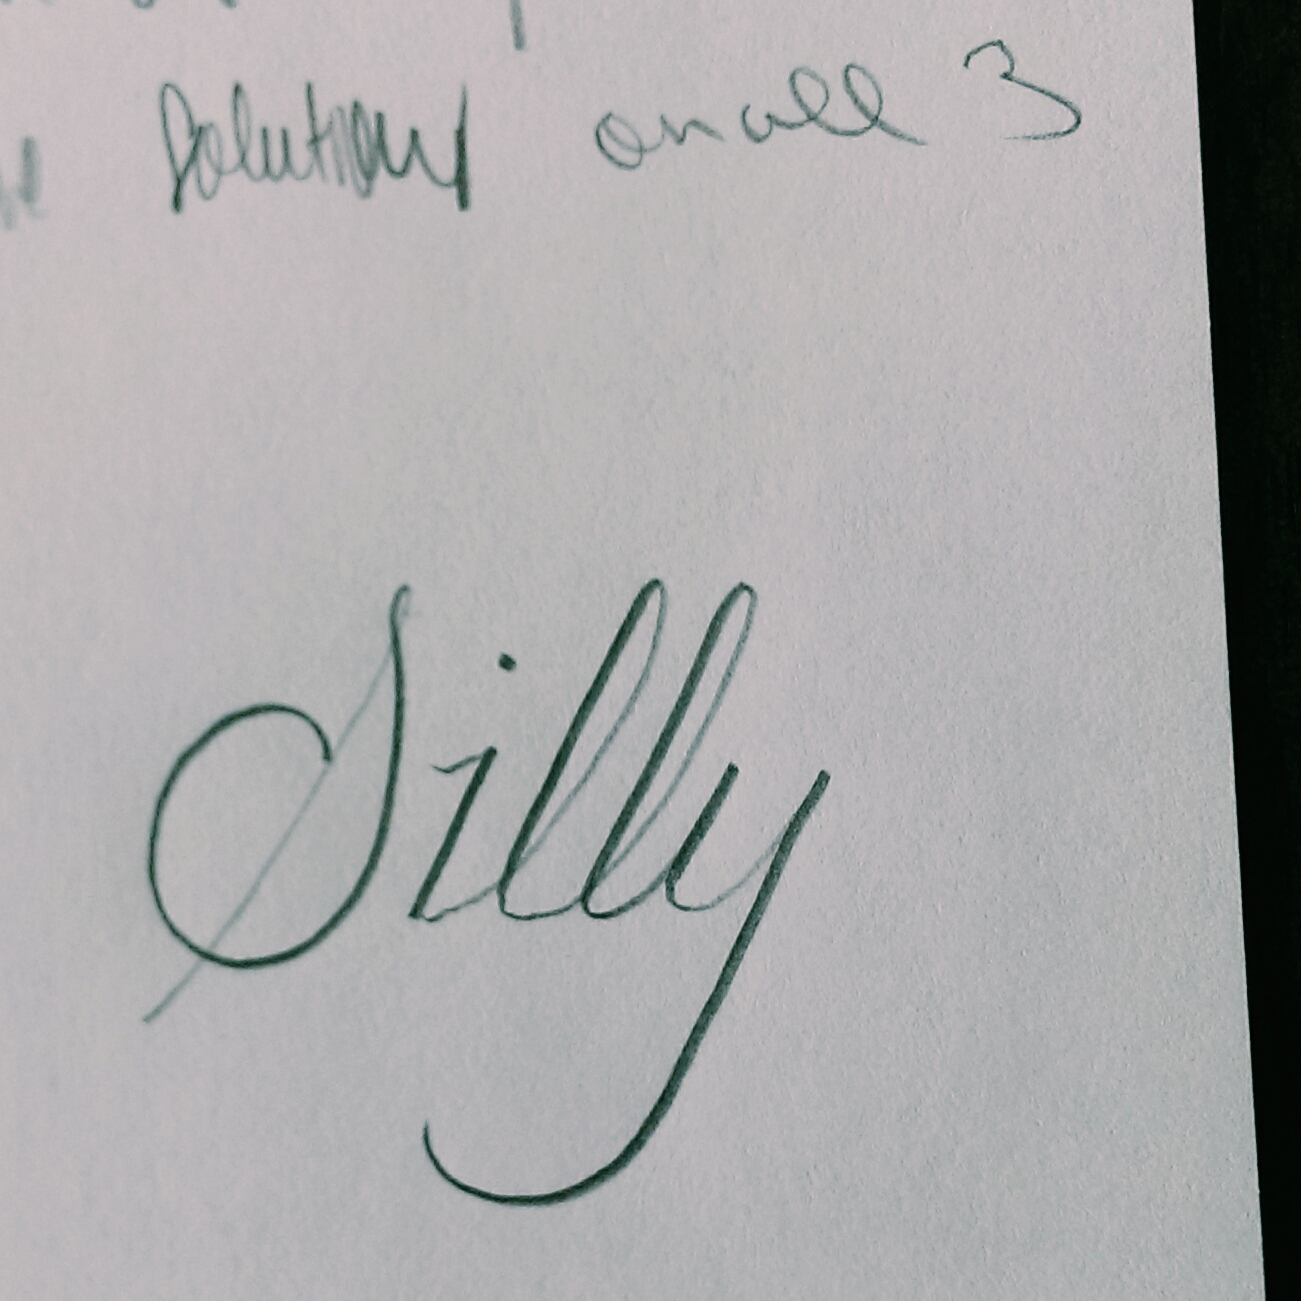 Solutions on all 3
Silly